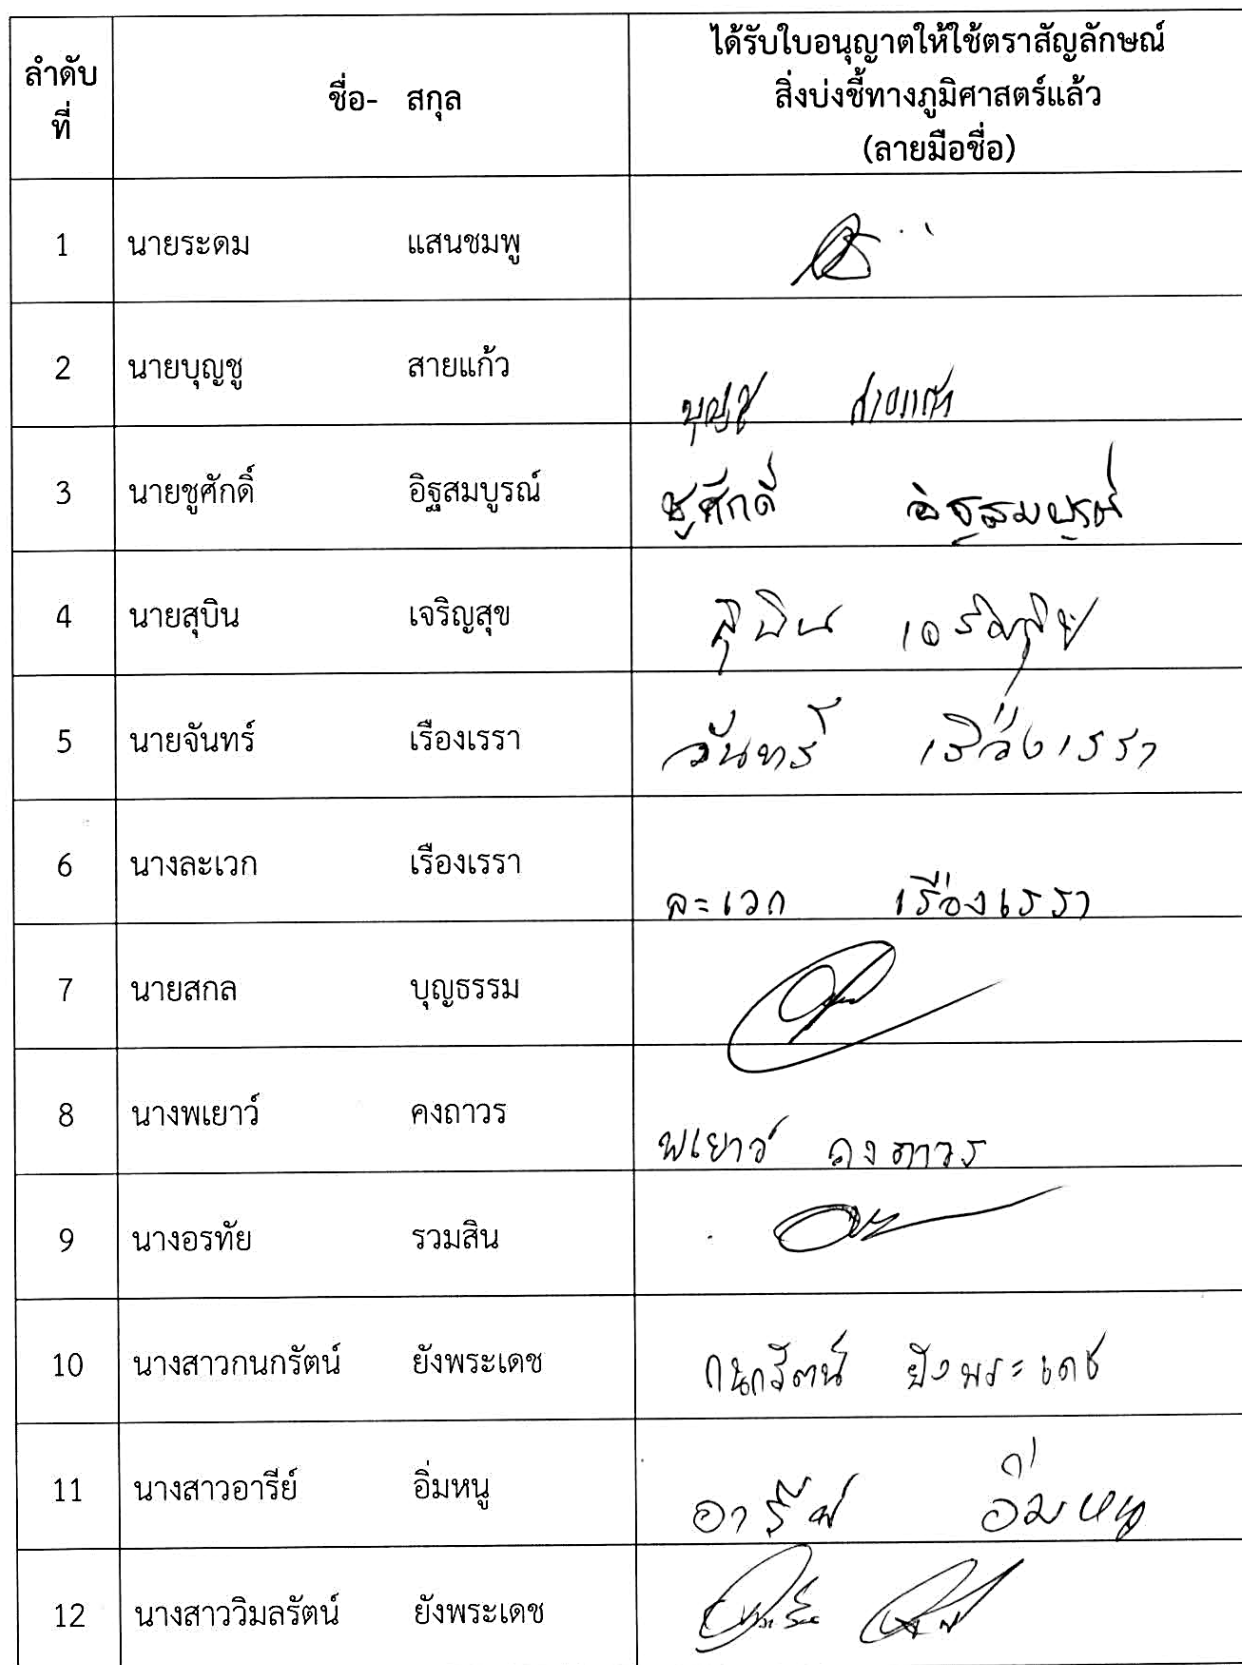 ลำดับที่ ชื่อ- สกุล ได้รับใบอนุญาตให้ใช้ตราสัญลักษณ์
สิ่งบ่งชี้ทางภูมิศาสตร์แล้ว
(ลายมือชื่อ)
1 นายระดม แสนชมพู
2 นายบุญชู สายแก้ว บุญชู สายแก้ว
3 นายชูศักดิ์ อิฐสมบูรณ์ ชูศักดิ์ อิฐสมบูรณ์
4 นายสุบิน เจริญสุข สุบิน เจริญสุข
5 นายจันทร์ เรืองเรรา จันทร์ เรืองเรรา
6 นางละเวก เรืองเรรา ละเวก เรืองเรรา
7 นายสกล บุญธรรม
8 นางพเยาว์ คงถาวร พเยาว์ คงถาวร
9 นางอรทัย รวมสิน
10 นางสาวกนกรัตน์ ยังพระเดช กนกรัตน์ ยังพระเดช
11 นางสาวอารีย์ อิ่มหนู อารีย์ อิ่มหนู
12 นางสาววิมลรัตน์ ยังพระเดช